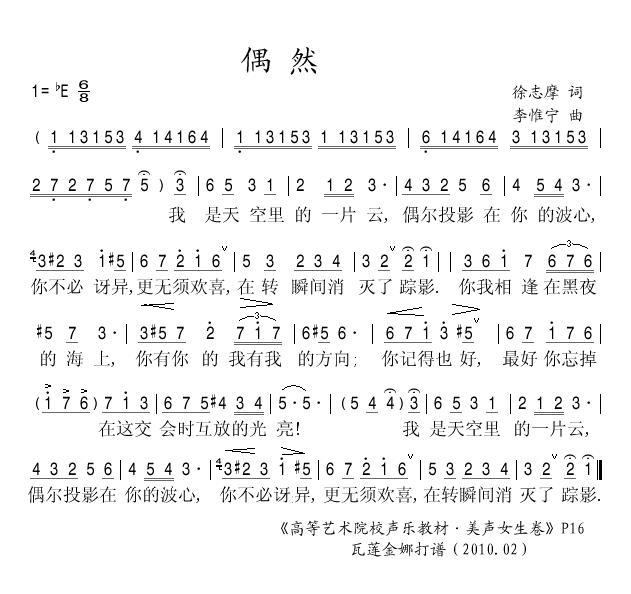 偶然
1=♭E 6/8
徐志摩 词
李惟宁 曲
( 1 13153 4 14164 | 1 13153 1 13153 | 6 14164 1 13153 |
2 7 2 7 5 7 5 ) 3 | 6 5 3 1 | 2 1 2 3· | 4 3 2 5 6 | 4 5 4 3· |
我 是天 空里 的 一片 云, 偶尔投影 在 你 的波心,
4 3 #2 3 1 #5 | 6 7 2 1 6 v | 5 3 2 3 4 | 3 2 2 1 | 3 6 1 7 6 7 6 |
你不必 讶异, 更无须欢喜, 在 转 瞬间消 灭了 踪影. 你我相 逢 在黑夜
#5 7 3· | 3 #5 7 2 7 1 7 | 6 #5 6· | 6 7 1 3 #5 v | 6 7 1 7 6 |
的 海 上, 你有你 的 我有我 的方向; 你记得也 好, 最好 你忘掉
( 1 7 6 ) 7 1 3 | 6 7 5 #4 3 4 | 5· 5· | ( 5 4 4 ) 3 | 6 5 3 1 | 2 1 2 3· |
在这交 会时互放的光 亮! 我 是天空里 的一片云,
4 3 2 5 6 | 4 5 4 3· | 4 3 #2 3 1 #5 | 6 7 2 1 6 v | 5 3 2 3 4 | 3 2 2 1 ‖
偶尔投影在 你的波心, 你不必讶异, 更无须欢喜, 在转瞬间消 灭了 踪影.
《高等艺术院校声乐教材·美声女生卷》P16
瓦莲金娜打谱(2010.02)